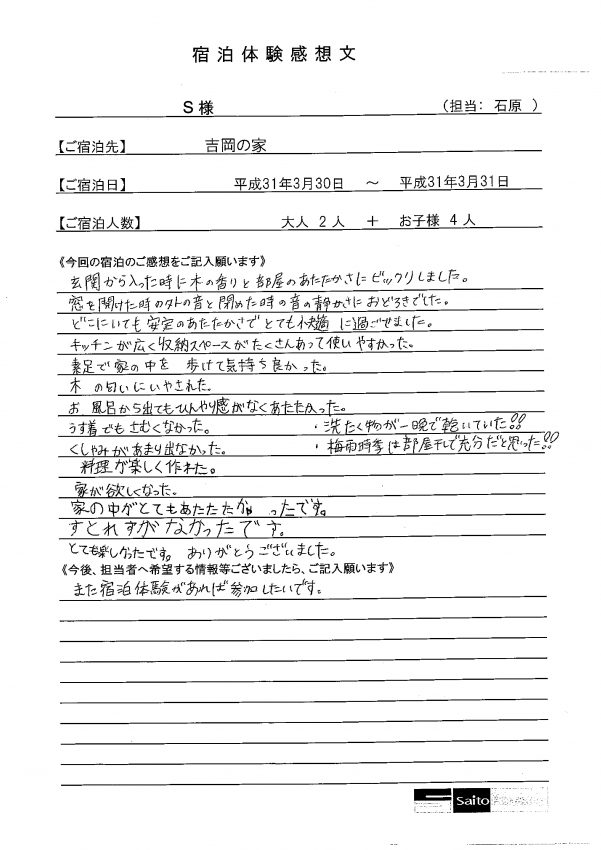 宿泊体験感想文
S様 （担当: 石原 ）
【ご宿泊先】 吉岡の家
【ご宿泊日】 平成31年3月30日 ～ 平成31年3月31日
【ご宿泊人数】 大人 2人 ＋ お子様 4人
《今回の宿泊のご感想をご記入願います》
玄関から入った時に木の香りと部屋のあたたかさにビックリしました。
窓を開けた時の外の音と閉めた時の音の静かさにおどろきでした。
どこにいても安定のあたたかさでとても快適 に過ごせました。
キッチンが広く収納スペースがたくさんあって使いやすかった。
素足で家の中を 歩けて気持ち良かった。
木 の匂いにいやされた。
お 風呂から出てもひんやり感がなくあたたかった。
うす着でもさむくなかった。 ・洗たく物が一晩で乾いていた!!
くしゃみがあまり出なかった。 ・梅雨時季は部屋干しで充分だと思った!!
料理が楽しく作れた。
家が欲しくなった。
家の中がとてもあたたたか ったです。
すとれすがなかったです。
とても楽しかったです。 ありがとうございました。
《今後、担当者へ希望する情報等ございましたら、ご記入願います》
また宿泊体験があれば参加したいです。
Saito